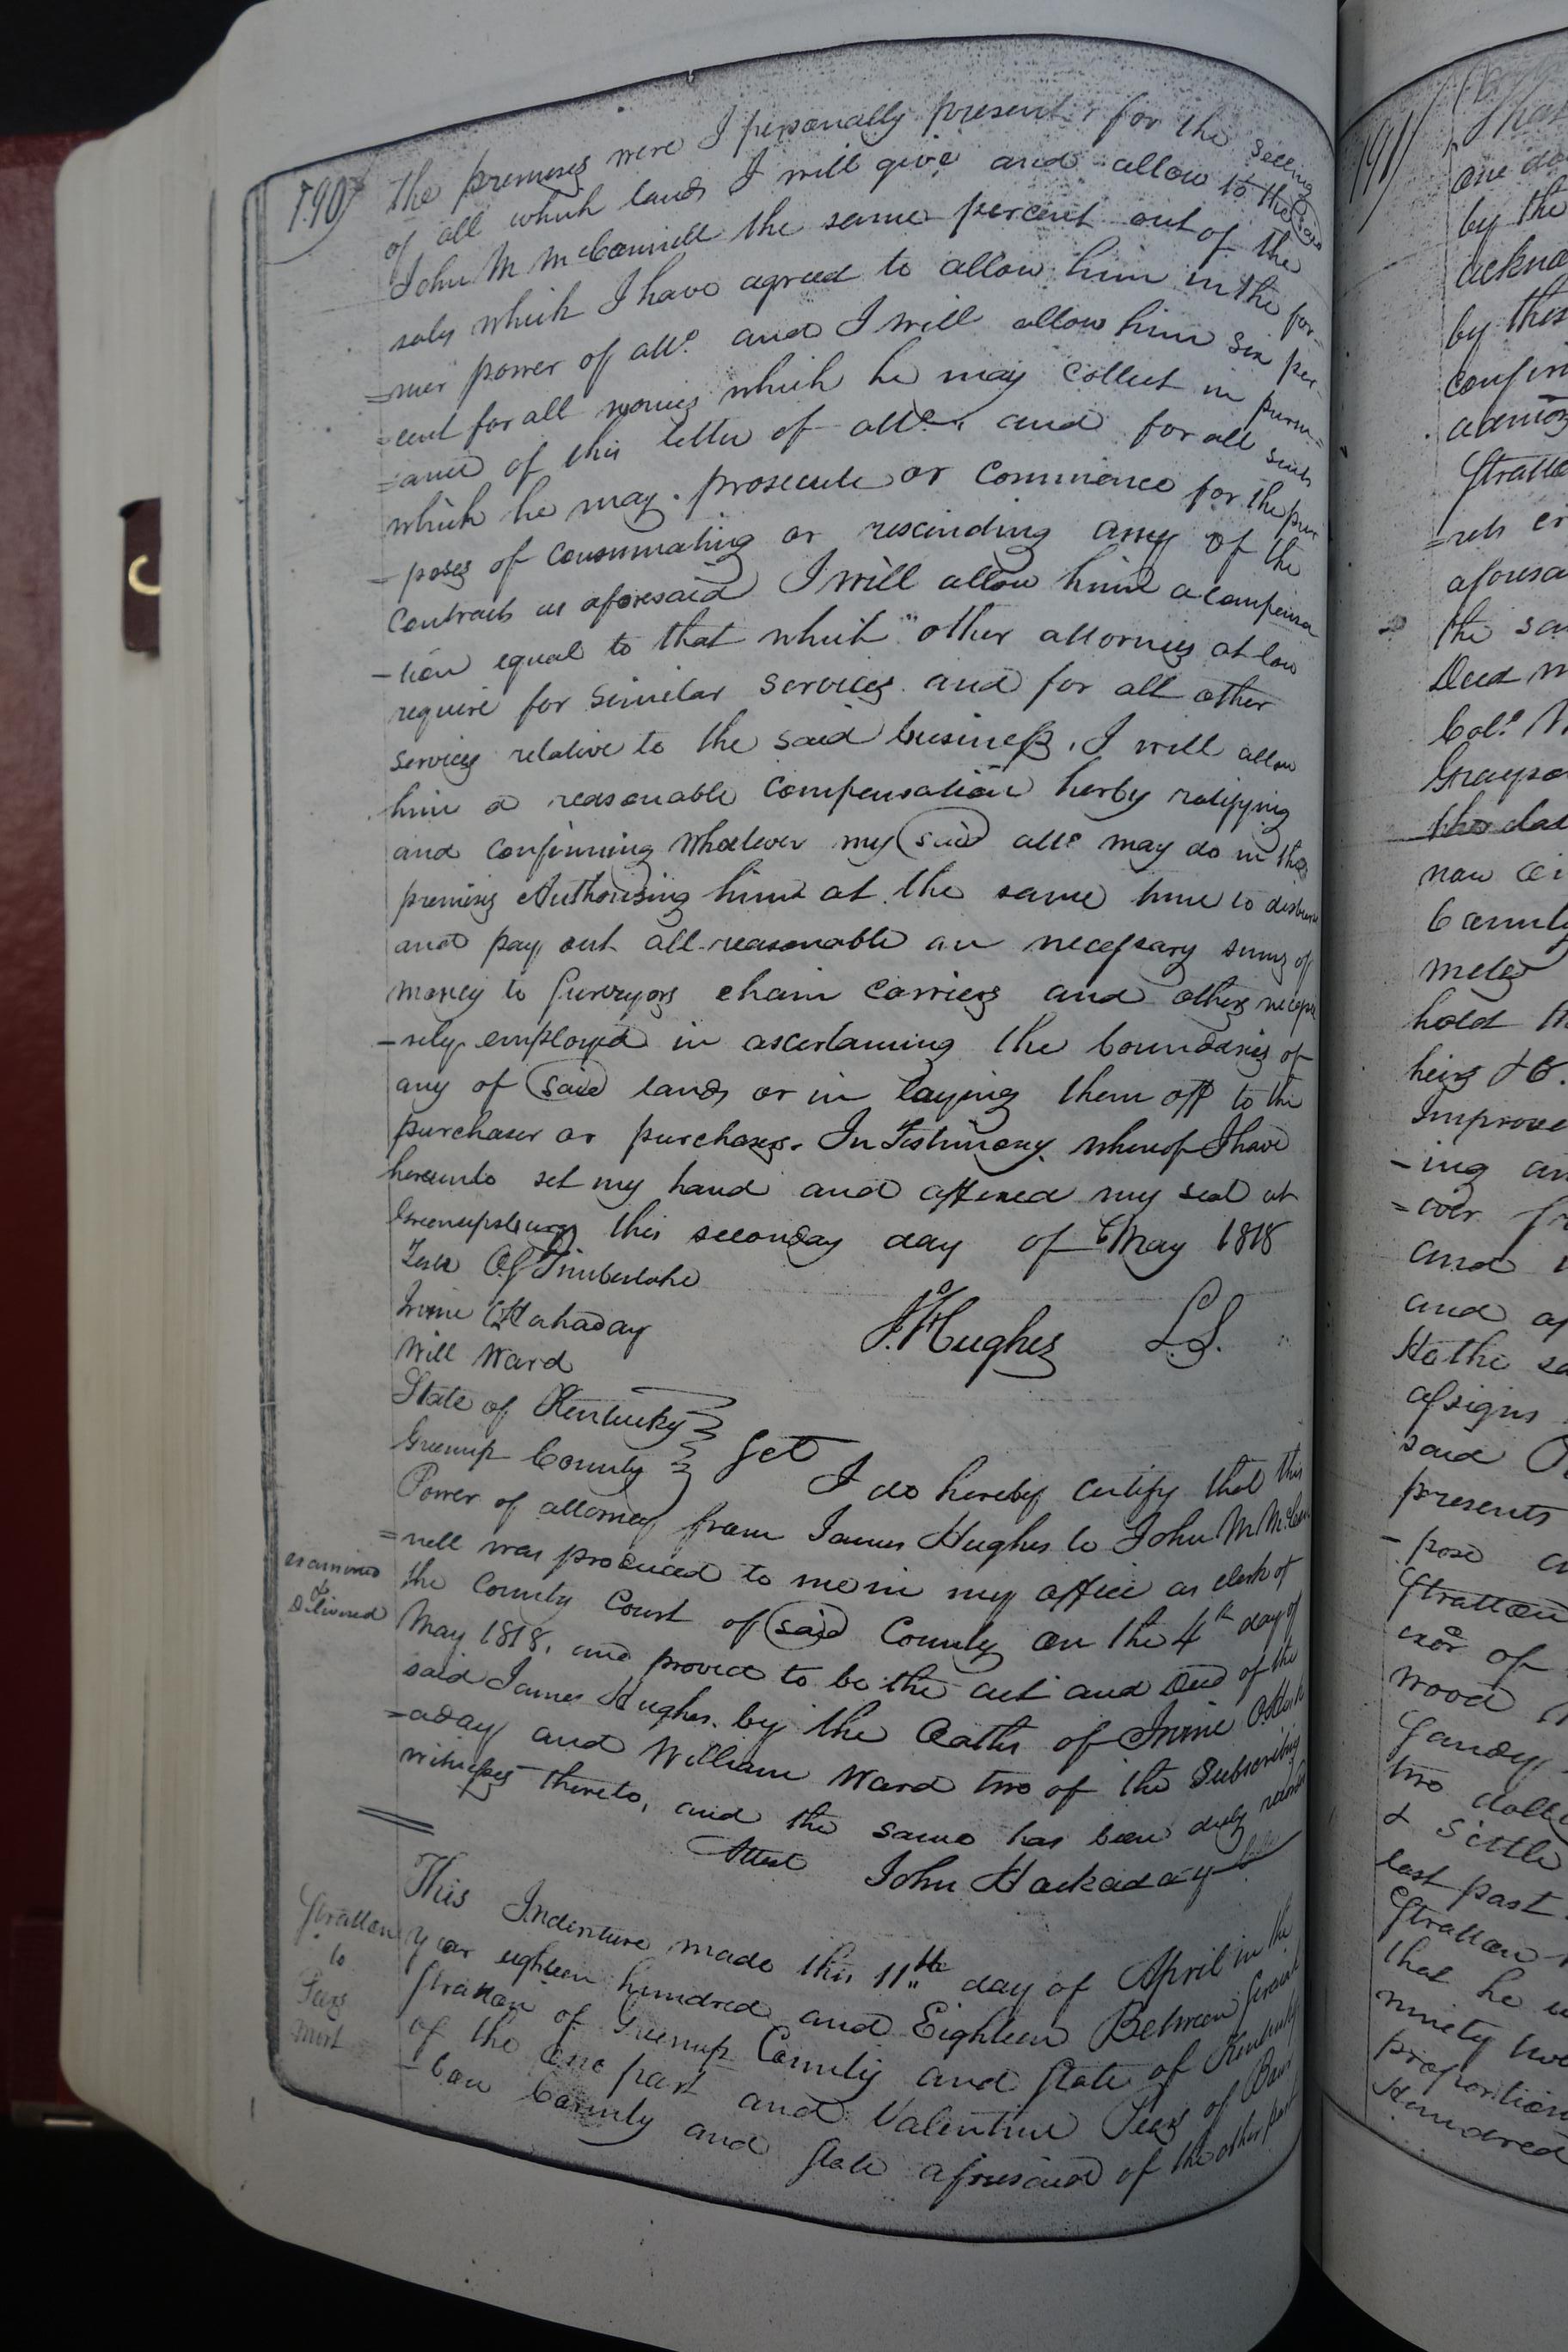 190
the premises were I personally present & for the selling
of all which lands I will give and allow to the said
John M McConnell the same percent out of the
sales which I have agreed to allow him in the for-
=mer power of atto. and I will allow him six per-
=cent for all monies which he may collect in pursu=
=ance of this letter of atto. and for all suits
which he may prosecute or commence for the pur
-poses of consummating or rescinding any of the
contracts as aforesaid I will allow him a compensa
-tion equal to that which other attornies at law
require for similar services and for all other
services relative to the said business, I will allow
him a reasonable compensation herby ratifying
and confirming whatever my said atto may do in the
premises Authorising him at the same time to disburse
and pay out all reasonable an necessary sums of
money to Surveyors chain carriers and others necessa
-rely employed in ascertaining the boundaries of
any of said lands or in laying them off to the
purchaser or purchasers. In Testimony whereof I have
hereunto set my hand and affixed my seal at
Greenupsburg this seconday day of May 1818
Teste Timberlake
J. Hughes L.S.
Will Ward
State of Kentucky
Greenup County
Sct
I do hereby certify that this
Power of attorney from James Hughes to John M McCon
=nell was produced to me in my office as clerk of
examined
the County Court of said County on the 4th day of
Delivered
May 1818. and proved to be the act and Deed of the
said James Hughes. by the Oaths of Irvine
=aday and William Ward two of the Subscribing
witnesses thereto, and the same has been duly recorded
Attest John Hockaday
Stratton
to
Peers
mort
This Indenture made this 11th day of April in the
year eighteen hundred and Eighteen Between
Stratton of Greenup County and State of Kentucky
of the one part and Valentine Peers of
County and State aforesaid of the other part
191
one do
by the
ackno
by this
confir
Stratto
aforesa
the sa
Deed
Colo.
Grayso
now
County
metes
hold
heirs &C.
Improve
-ing an
and
and
to the sa
assigns
said
presents
-pose
Stratton
exor of
wood
two doll
& settle
last past
Stratton
that he
ninety
proportion
Hundred